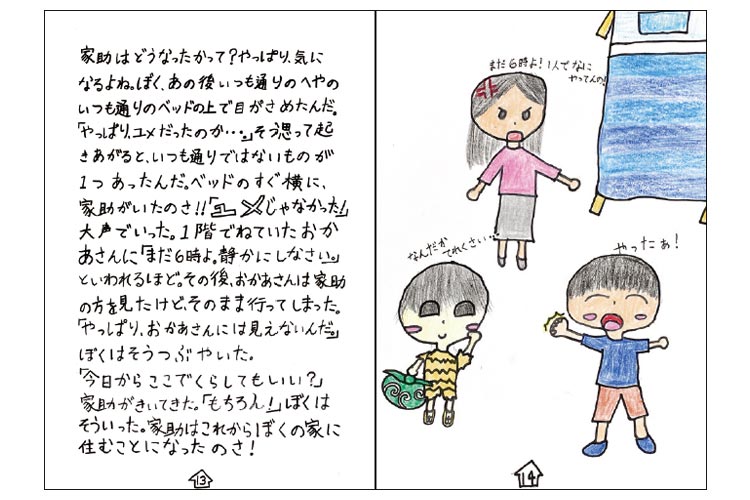 家助はどうなったかって?やっぱり、気に
なるよね。ぼく、あの後いつも通りのへやの
いつも通りのベッドの上で目がさめたんだ。
「やっぱり、ユメだったのか・・・。」そう思って起
きあがると、いつも通りではないものが
1つあったんだ。ベッドのすぐ横に、
家助がいたのさ!!「ユメじゃなかった!」
大声でいった。1階でねていたおか
あさんに「まだ6時よ。静かにしなさい。」
といわれるほど。その後、おかあさんは家助
の方を見たけど、そのまま行ってしまった。
「やっぱり、おかあさんには見えないんだ。」
ぼくはそうつぶやいた。
「今日からここでくらしてもいい?」
家助がきいてきた。「もちろん!」ぼくは
そういった。家助はこれからぼくの家に
住むことになったのさ!
13
まだ6時よ!1人でなに
やってんの!
なんだか
てれくさい・・・
やったぁ!
14